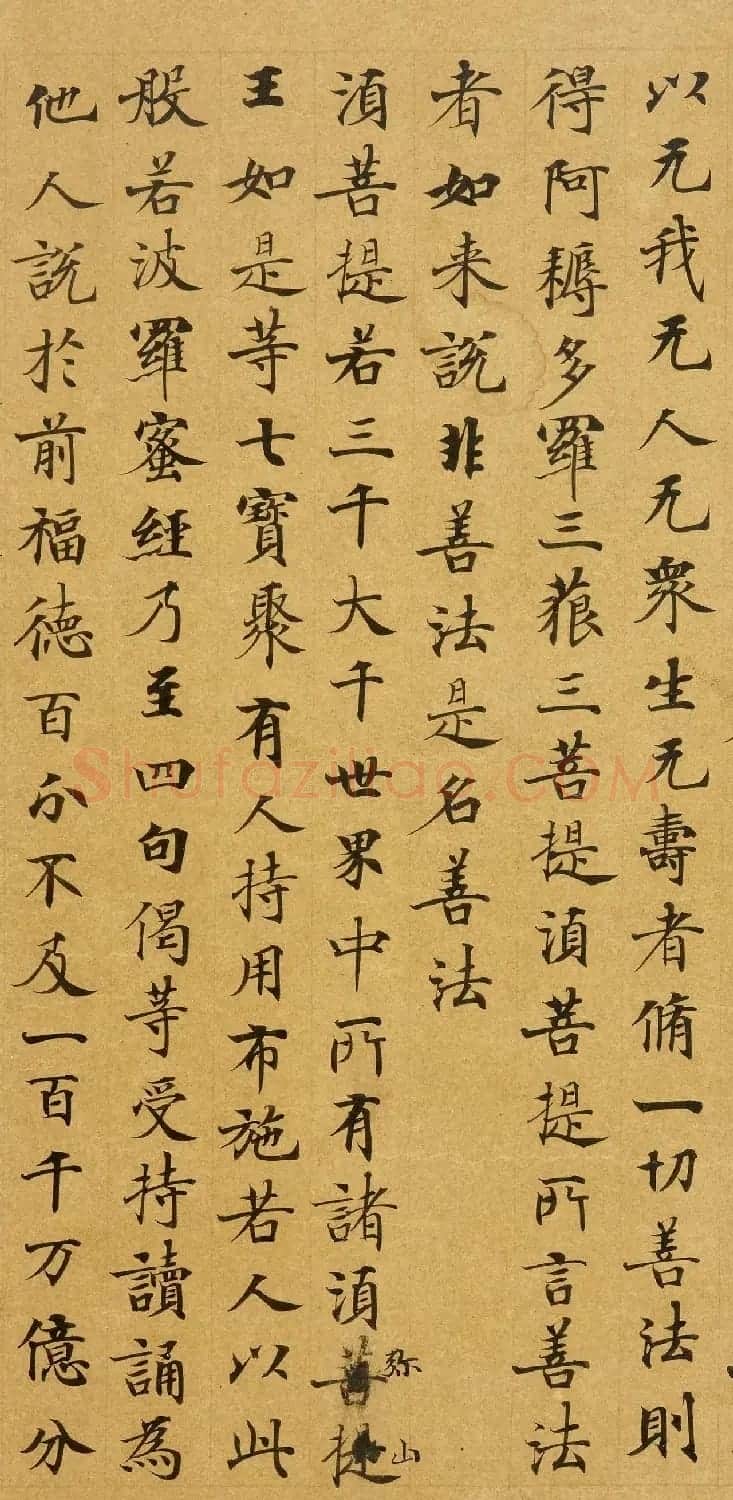 以无我无人无衆生无壽者脩一切善法則
得阿耨多羅三藐三菩提湏菩提所言善法
者如来說非善法是名善法
湏菩提若三千大千世界中所有諸湏菩提弥山
王如是等七寶聚有人持用布施若人以此
般若波羅蜜經乃至四句偈等受持讀誦為
他人說於前福徳百分不及一百千万億分
Shufaziliao.COM